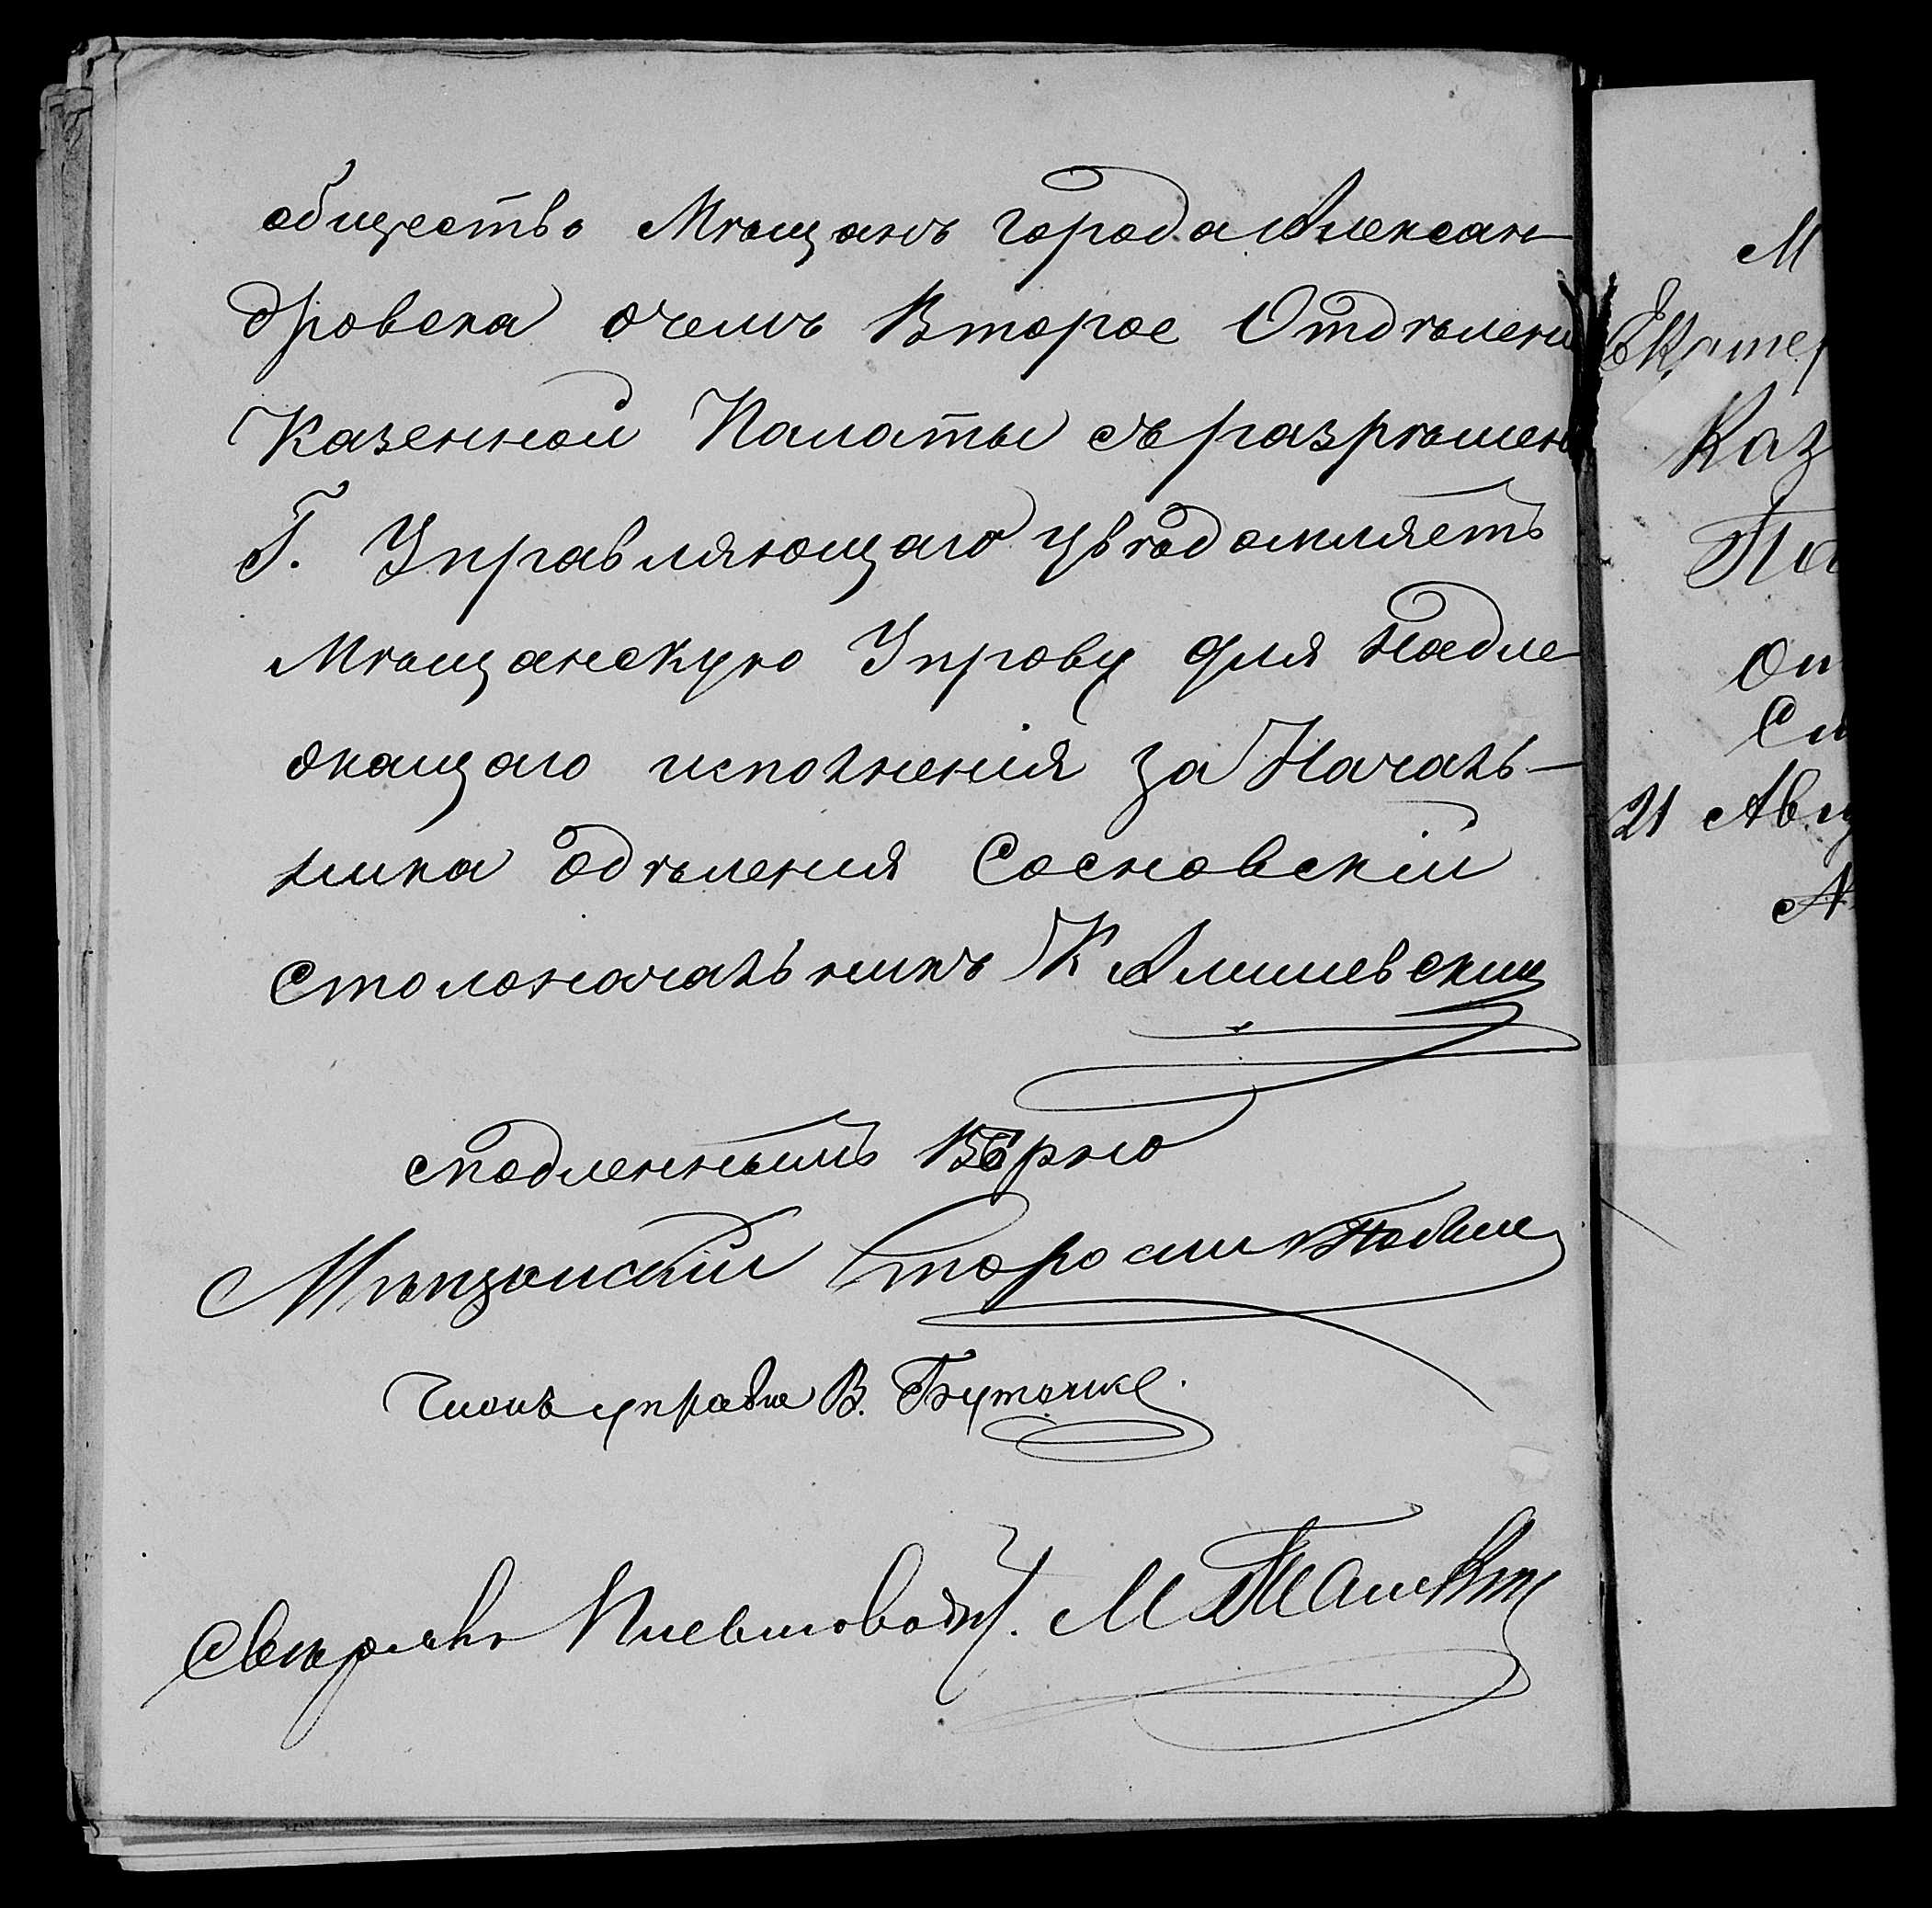 общество Мѣщанъ города Алексан
дровска очемъ Второе Отдѣлені
Казенной Палаты съ разрѣшен
Г. Управляющаго увѣдомляетъ
Мѣщанскую Управу для надле
жащаго исполненія за Началь-
ника Одѣления Сосновскій
Столоначальникъ К
сподленнымъ Вѣрно
Мѣщанскій Староста
Членъ управы В.
Свѣрялъ М
М
Екатер
Каз
Па
От
Ст
21 Авгу
№